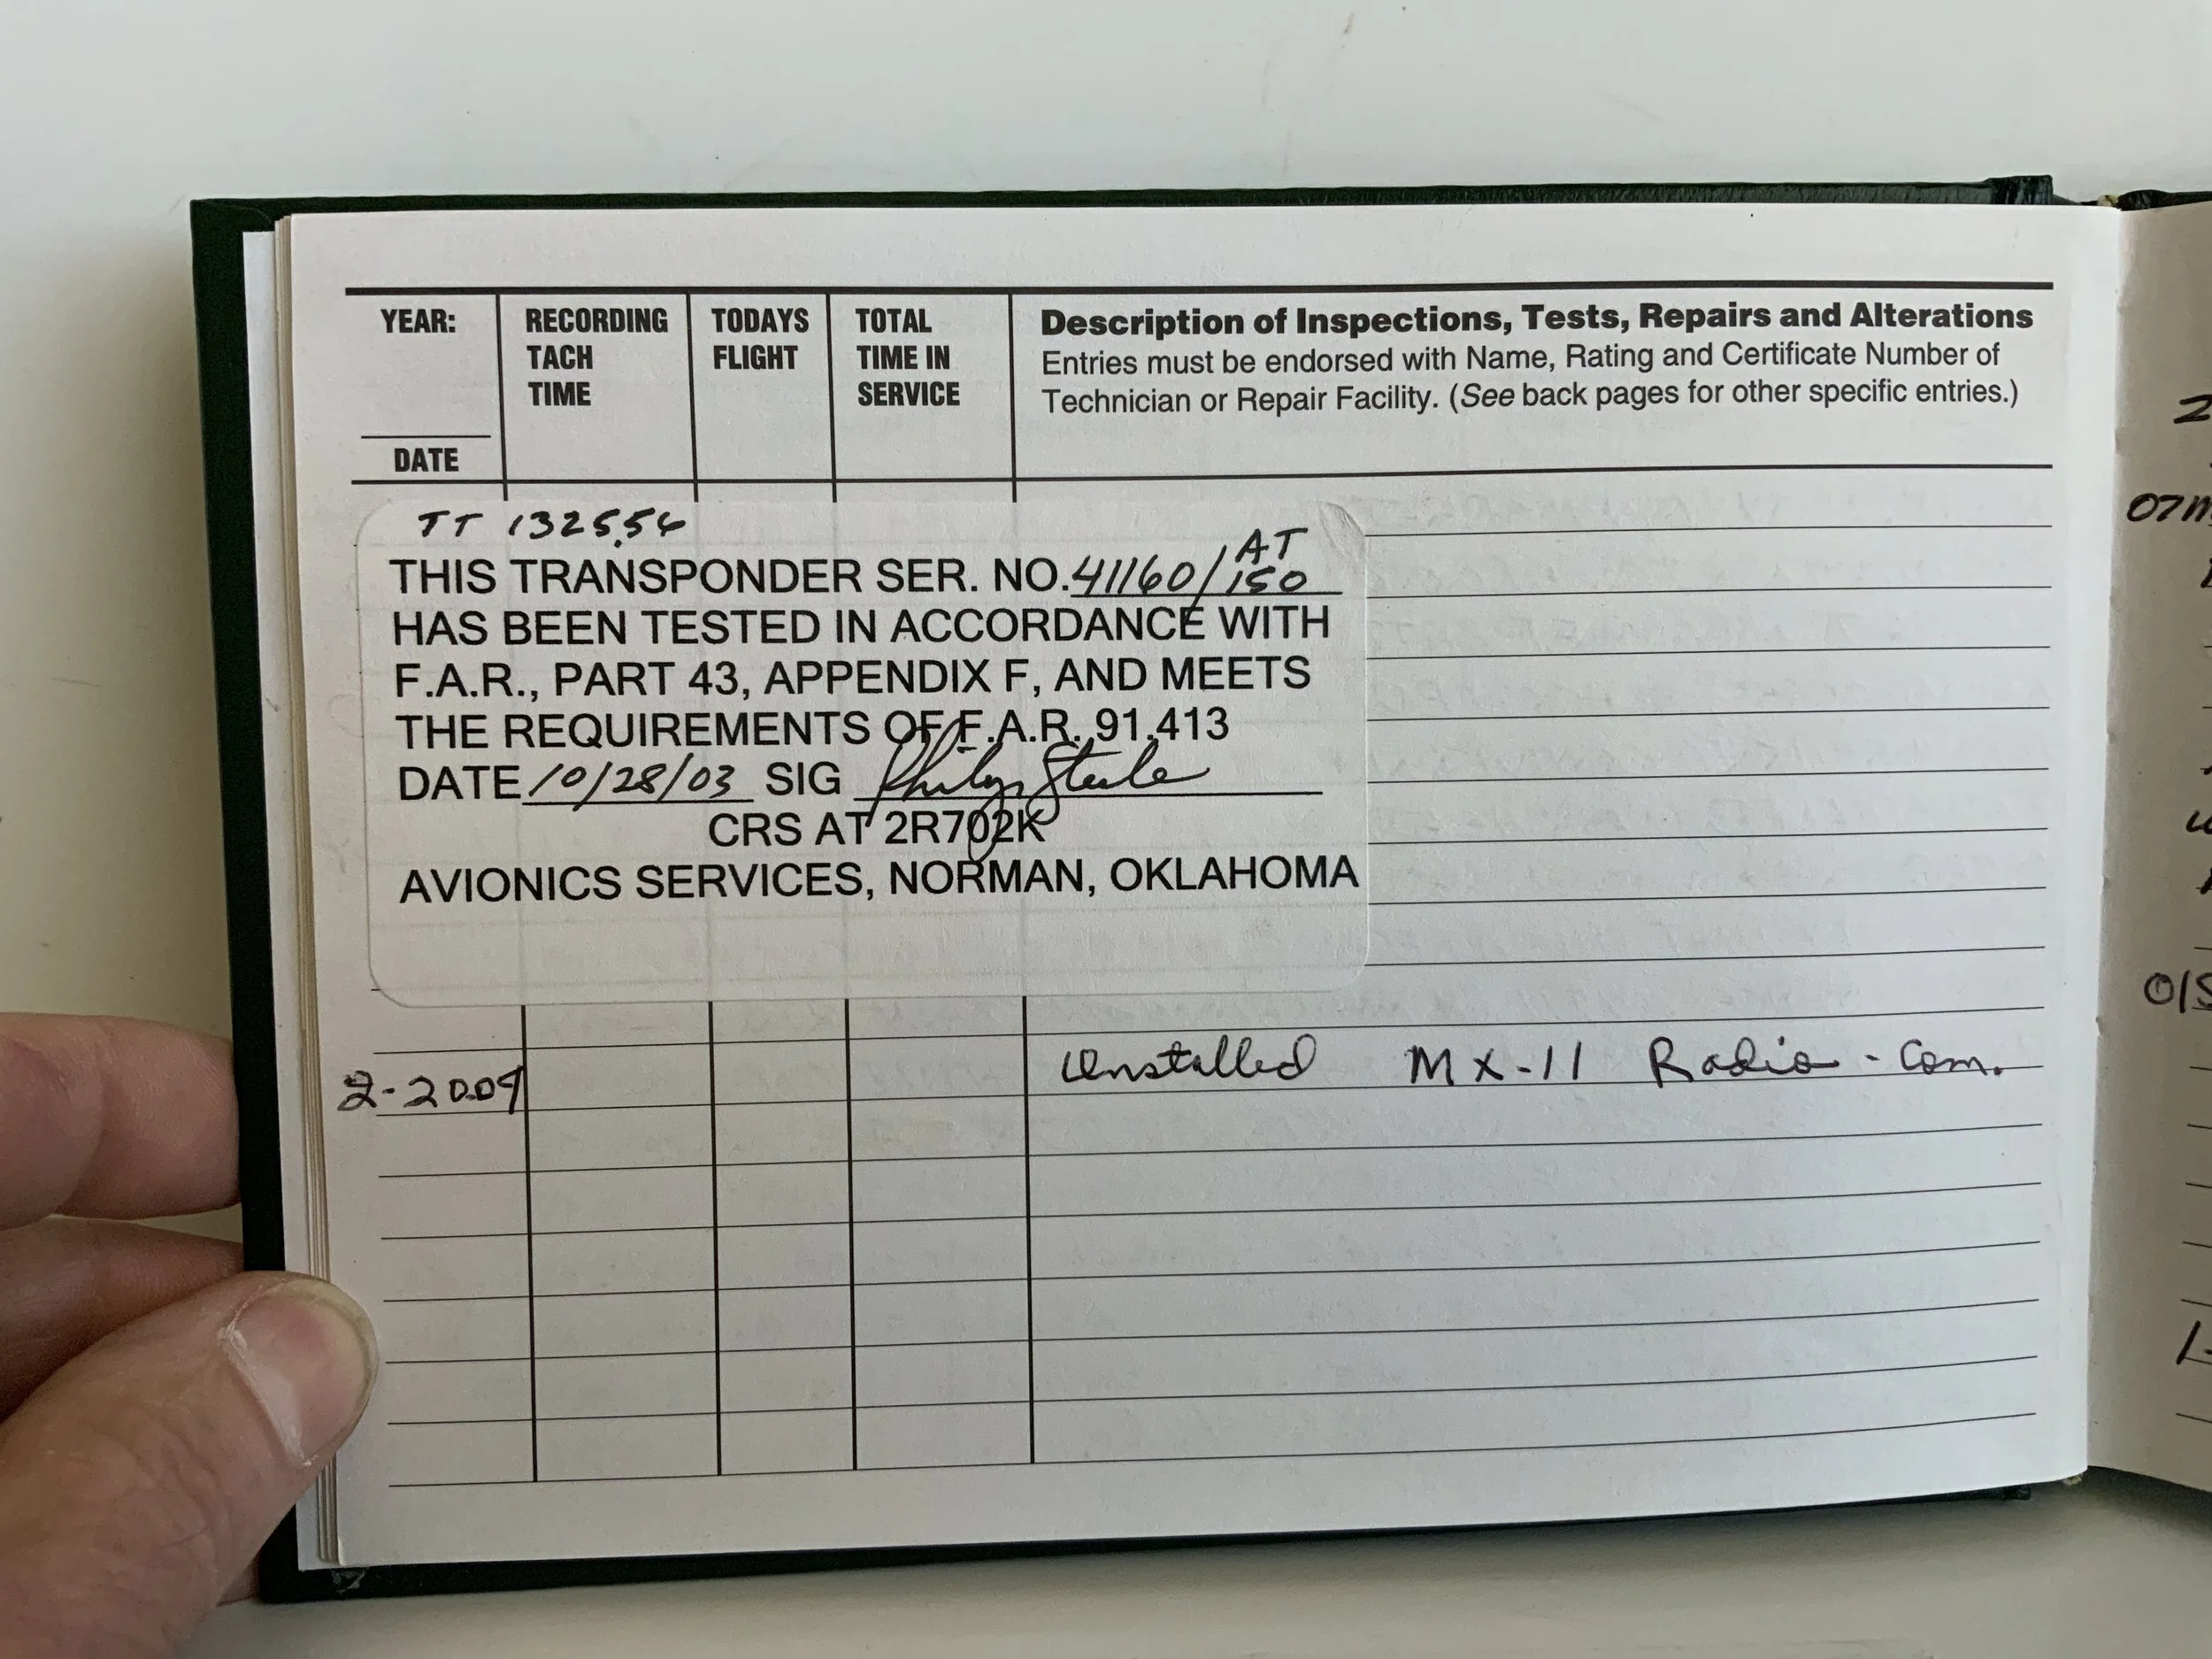 YEAR:
DATE
RECORDING
TACH
TIME
TODAYS
FLIGHT
TOTAL
TIME IN
SERVICE
Description of Inspections, Tests, Repairs and Alterations
Entries must be endorsed with Name, Rating and Certificate Number of
Technician or Repair Facility. (See back pages for other specific entries.)
TT 1325.56
THIS TRANSPONDER SER. NO. 41160/AT 150
HAS BEEN TESTED IN ACCORDANCE WITH
F.A.R., PART 43, APPENDIX F, AND MEETS
THE REQUIREMENTS OF F.A.R. 91.413
DATE 10/28/03 SIG
CRS AT 2R702K
AVIONICS SERVICES, NORMAN, OKLAHOMA
2-2009 Installed MX-11 Radio - Com.
07